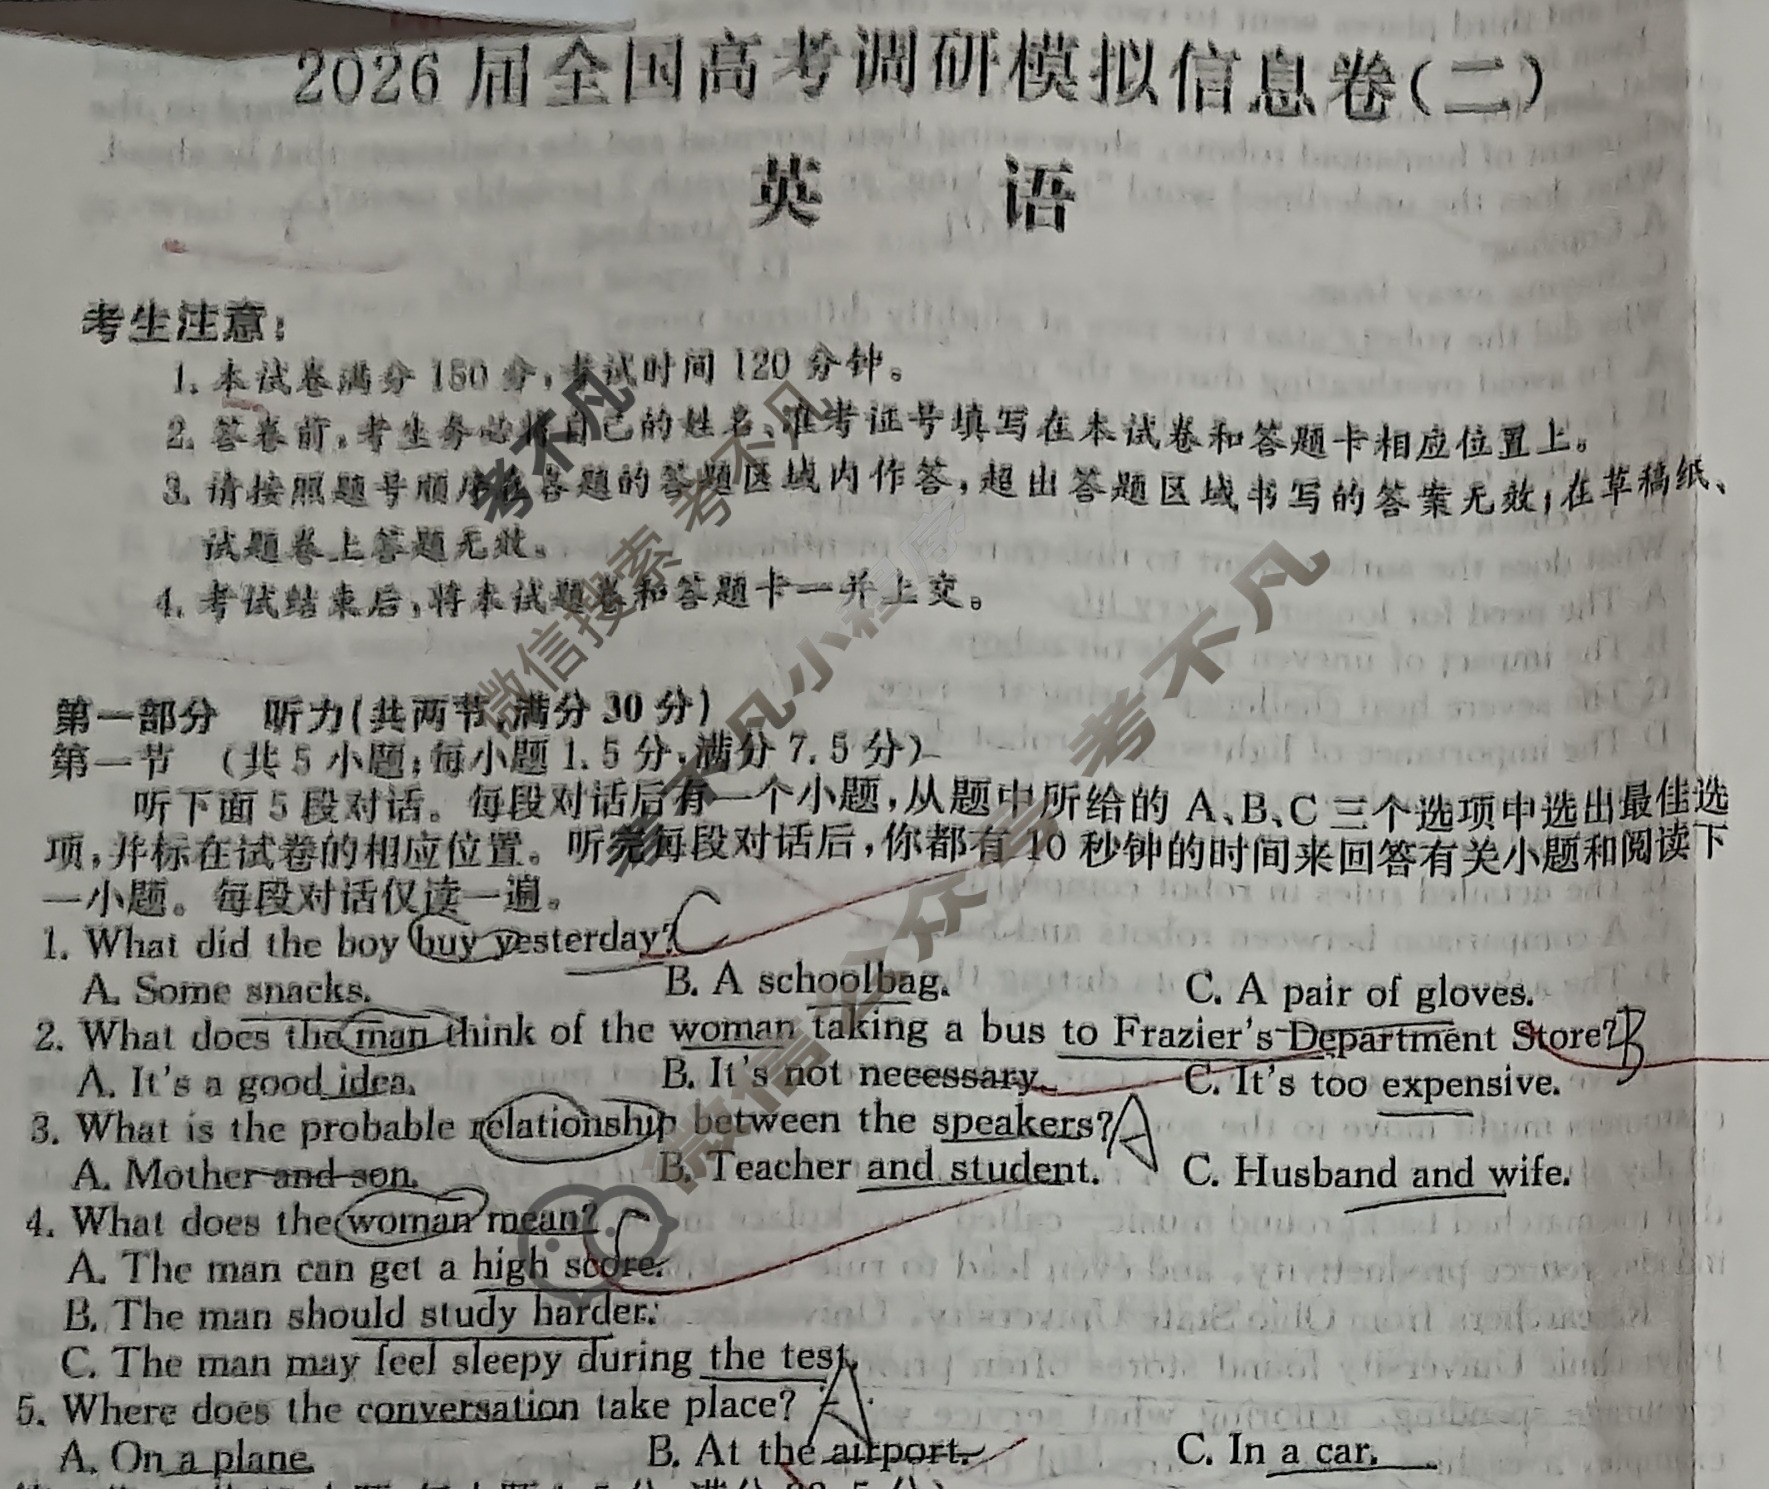 2026届全国高考调研模拟信息卷(二)
英 语
考生注意:
1. 本试卷满分150分,考试时间120分钟。
2. 答卷前,考生务必将自己的姓名、准考证号填写在本试卷和答题卡相应位置上。
3. 请按照题号顺序在各题的答题区域内作答,超出答题区域书写的答案无效;在草稿纸、
试题卷上答题无效。
4. 考试结束后,将本试题卷和答题卡一并上交。
第一部分 听力(共两节,满分30分)
第一节 (共5小题;每小题1.5分,满分7.5分)
听下面5段对话。每段对话后有一个小题,从题中所给的A、B、C三个选项中选出最佳选
项,并标在试卷的相应位置。听完每段对话后,你都有10秒钟的时间来回答有关小题和阅读下
一小题。每段对话仅读一遍。
1. What did the boy buy yesterday? C
A. Some snacks. B. A schoolbag. C. A pair of gloves.
2. What does the man think of the woman taking a bus to Frazier's Department Store? B
A. It's a good idea. B. It's not necessary. C. It's too expensive.
3. What is the probable relationship between the speakers? A
A. Mother and son. B. Teacher and student. C. Husband and wife.
4. What does the woman mean? C
A. The man can get a high score.
B. The man should study harder.
C. The man may feel sleepy during the test.
5. Where does the conversation take place? A
A. On a plane. B. At the airport. C. In a car.
考不凡
微信搜索 考不凡
考不凡小程序
微信公众号 考不凡